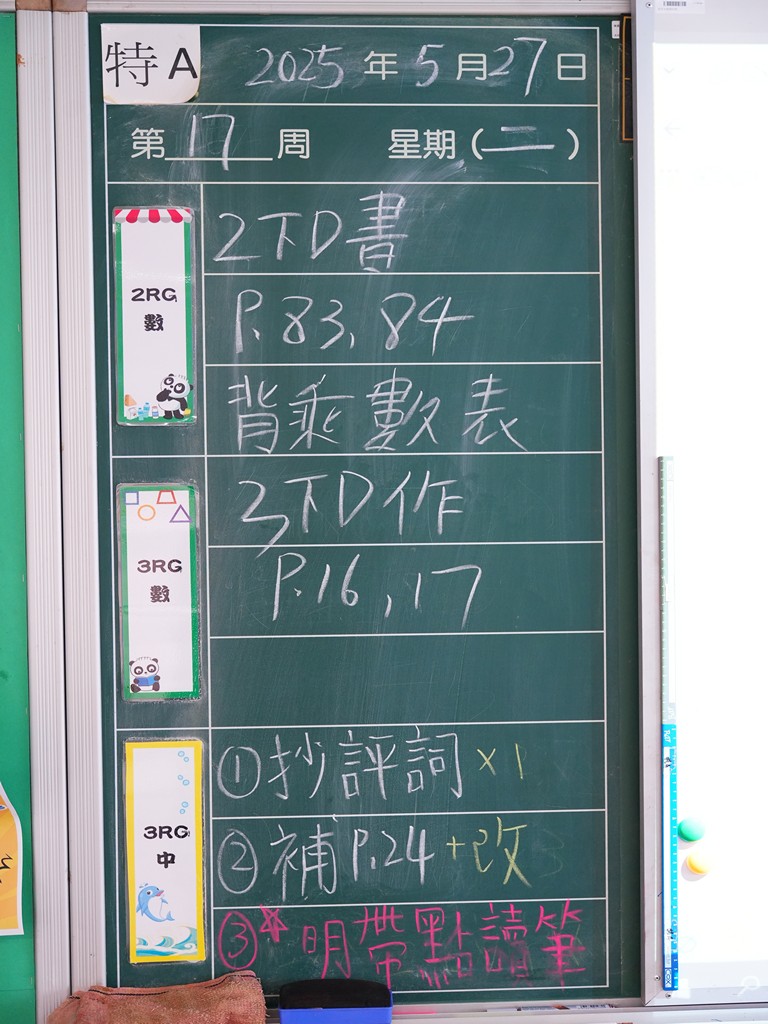 特A 2025年5月27日
第17周 星期(二)
2RG
數
2下D書
P.83,84
背乘數表
3RG
數
3下D作
P.16,17
3RG
中
①抄評詞 x1
②補P.24+改
③*明帶點讀筆